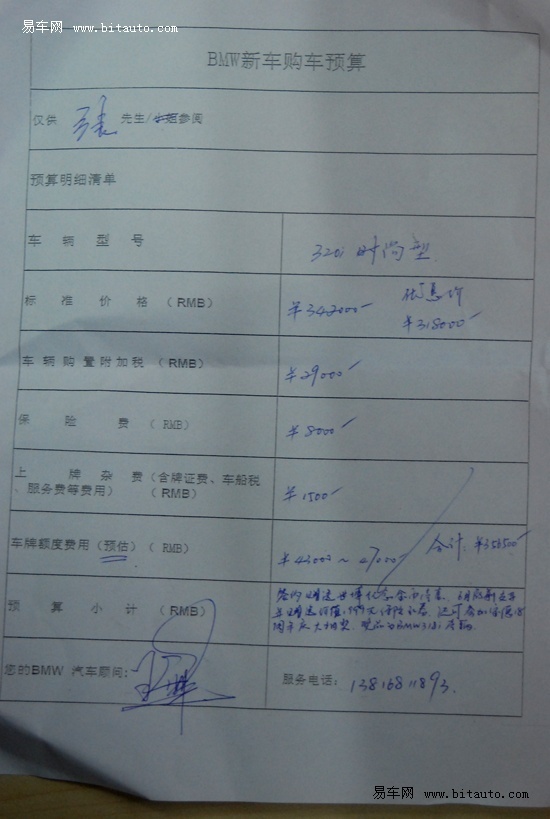 易车网 www.bitauto.com
BMW新车购车预算
仅供 张 先生/小姐参阅
预算明细清单
车辆型号 320i 时尚型
标准价格（RMB） ¥342000 优惠价 ¥318000
车辆购置附加税（RMB） ¥29000
保险费（RMB） ¥8000
上牌杂费（含牌证费、车船税
、服务费等费用）（RMB） ¥1500
车牌额度费用（预估）（RMB） ¥42000~47000 合计:¥356500
预算小计（RMB）
您的BMW 汽车顾问:
服务电话: 13816811893
易车网 www.bitauto.com